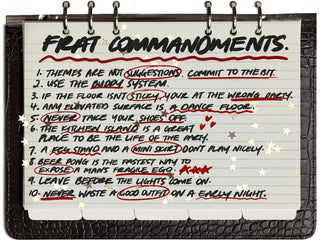 FRAT COMMANDMENTS.
1. THEMES ARE NOT SUGGESTIONS. COMMIT TO THE BIT.
2. USE THE BUDDY SYSTEM.
3. IF THE FLOOR ISN'T STICKY, YOUR AT THE WRONG PARTY.
4. ANY ELEVATED SURFACE IS A DANCE FLOOR.
5. NEVER TAKE YOUR SHOES OFF.
6. THE KITCHEN ISLAND IS A GREAT
PLACE TO BE THE LIFE OF THE PARTY.
7. A KEG STAND AND A MINI SKIRT DON'T PLAY NICELY.
8. BEER PONG IS THE FASTEST WAY TO
EXPOSE A MAN'S FRAGILE EGO.
9. LEAVE BEFORE THE LIGHTS COME ON.
10. NEVER WASTE A GOOD OUTFIT ON A EARLY NIGHT.